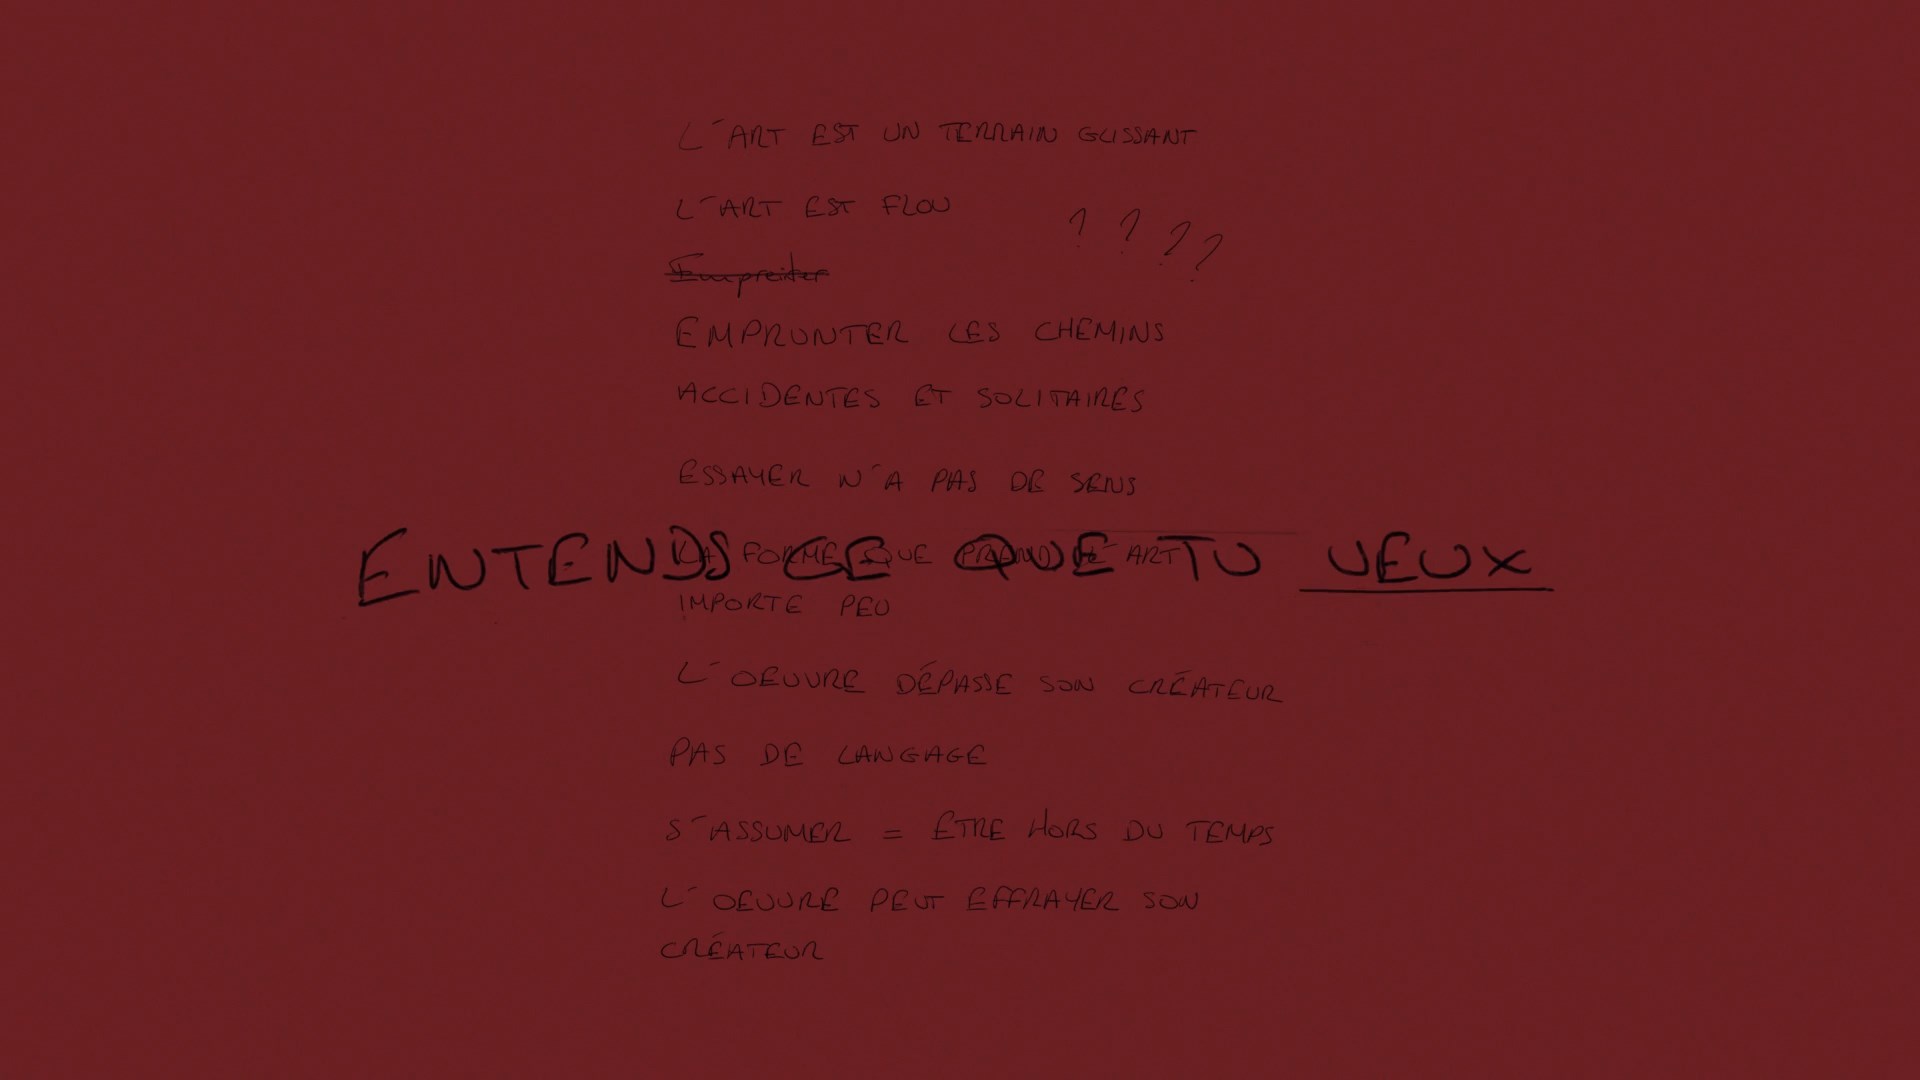 L'ART EST UN TERRAIN GLISSANT
L'ART EST FLOU
? ? ? ?
EMPRUNTER LES CHEMINS
ACCIDENTES ET SOLITAIRES
ESSAYER N'A PAS DE SENS
LA FORME QUE PREND L'ART
ENTENDS CE QUE TU VEUX
IMPORTE PEU
L'OEUVRE DÉPASSE SON CRÉATEUR
PAS DE LANGAGE
S'ASSUMER = ETRE HORS DU TEMPS
L'OEUVRE PEUT EFFRAYER SON
CRÉATEUR